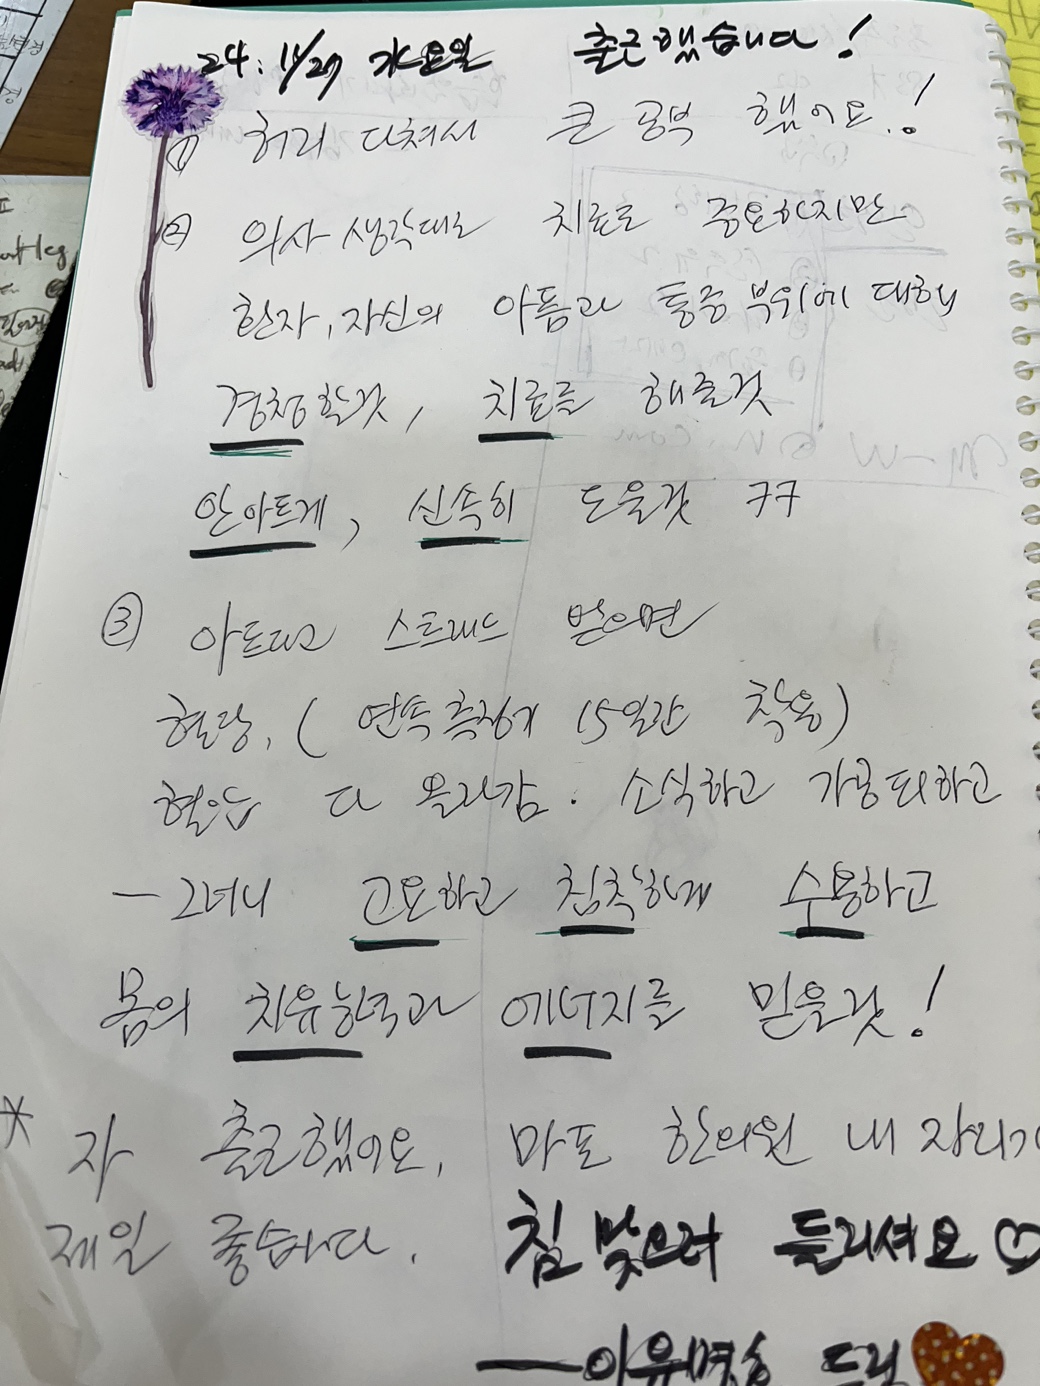 24. 11/27 水요일 출근했습니다!
① 허리 다쳐서 큰 공부 했어요.!
② 의사 생각대로 치료도 중요하지만
환자, 자신의 아픔과 통증 부위에 대해
경청할것, 치료를 해줄것
안아프게, 신속히 도울것 ㅋㅋ
③ 아프고 스트레스 받으면
혈당, ( 연속측정기 15일간 착용)
혈압 다 올라감. 소식하고 하고
— 그러니 고요하고 침착하게 수용하고
몸의 치유능력과 에너지를 믿을것!
* 자 출근했어요, 마포 한의원 내 자리가
제일 좋습니다. 침 맞으러 들리셔요 ♡
— 드림